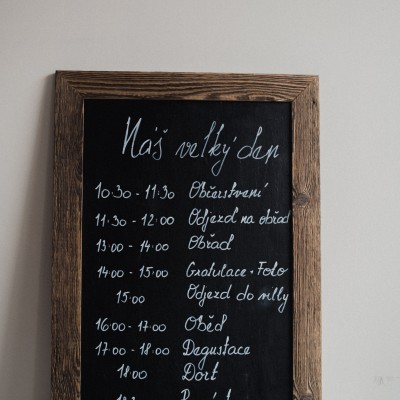 Náš velký den
10:30 - 11:30 Občerstvení
11:30 - 12:00 Odjezd na obřad
13:00 - 14:00 Obřad
14:00 - 15:00 Gratulace + Foto
15:00 Odjezd do villy
16:00 - 17:00 Oběd
17:00 - 18:00 Degustace
18:00 Dort